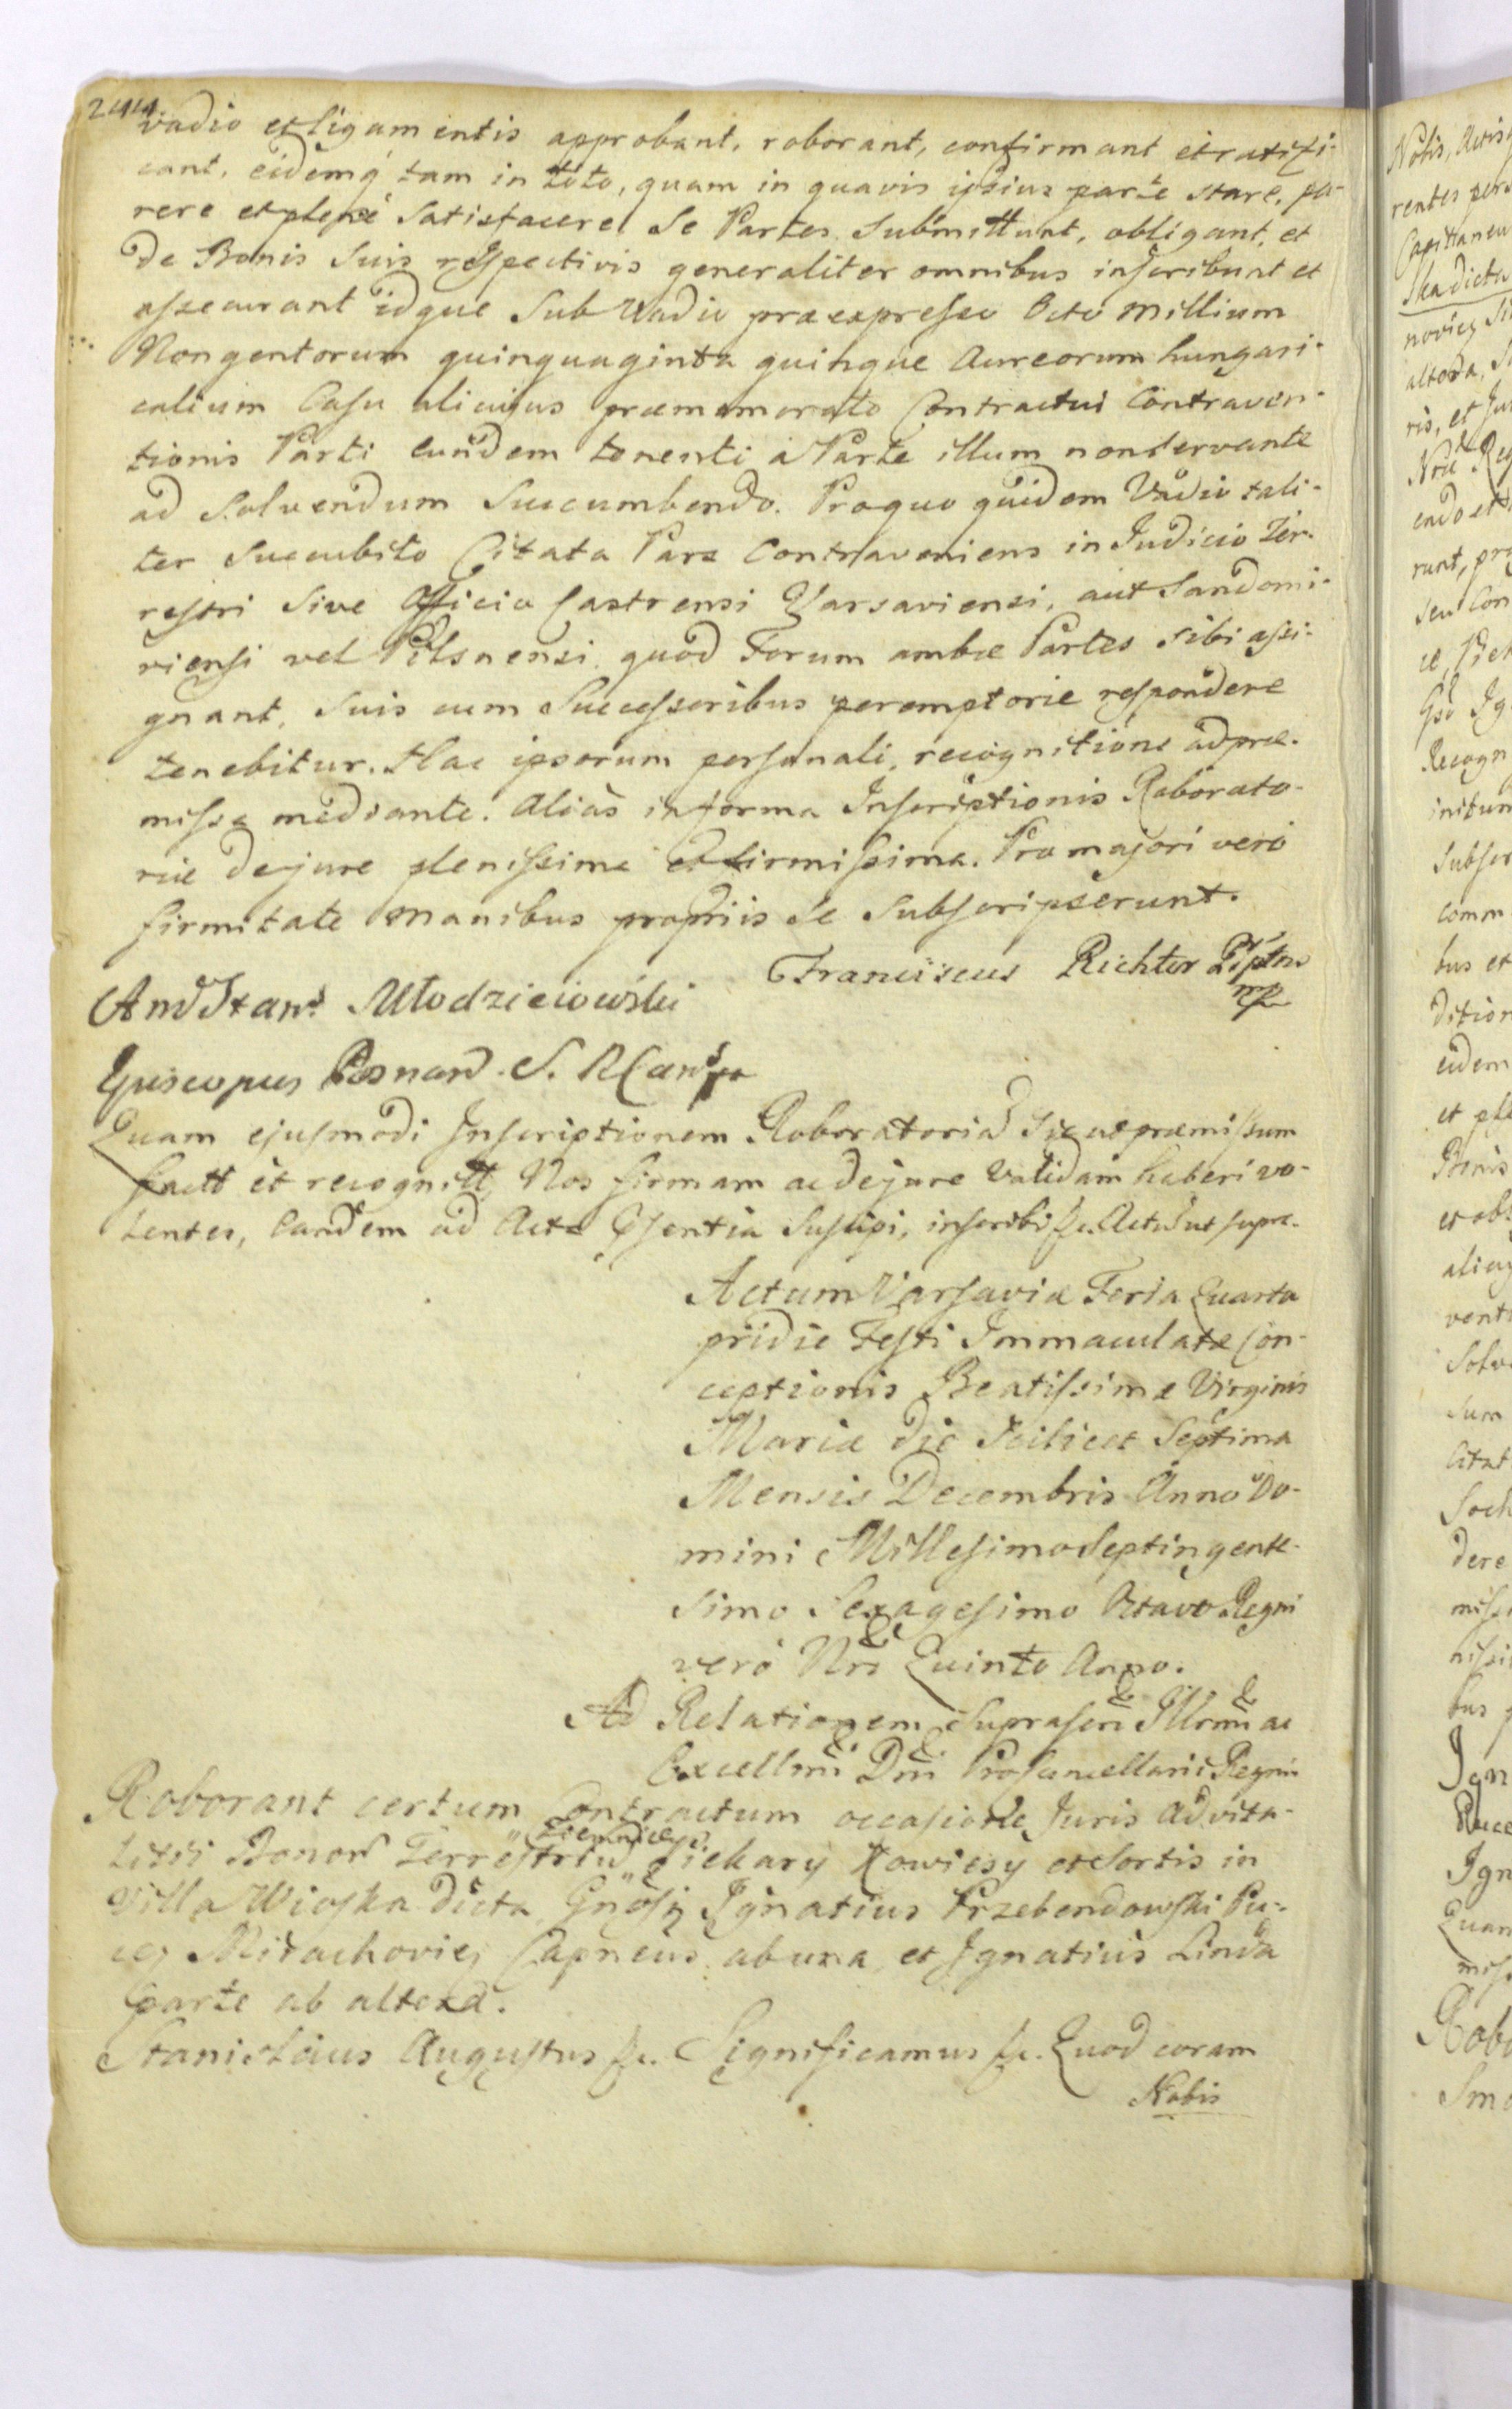 244
vadio et ligamentis approbant, roborant, confirmant et ratifi-
cant, eidemq́ tam in toto, quam in quavis ipsius parte stare, pa-
rere et plene Satisfacere Se Partes Submittunt, obligant, et
de Bonis Suis respectivis generaliter omnibus inscribunt et
assecurant idque Sub Vadio præexpresso Octo Millium
Nongentorum quinquaginta quinque Aureorum hungari-
calium Casu alicujus præmemorato Contractui Contraven-
tionis Parti Eundem tenenti à Parte illum non Servante
ad Solvendum Succumbendo. Pro quo quidem Vadio tali-
ter Succubito Citata Pars Contraveniens in Judicio Ter-
restri Sive Officio Castrensi Varsaviensi, aut Sandomi-
riensi vel Pilsnensi quod Forum ambæ Partes Sibi assi-
gnant, Suis cum Successoribus peremptorie respondere
tenebitur. Hac ipsorum personali, recognitione ad præ-
missa mediante. Alias in forma Inscriptionis Roborato-
riæ de jure plenissima et firmissima. Pro majori vero
firmitate Manibus propriis Se Subscripserunt.
Franciscus Richter
mp
And Stans Młodzieiowski
Episcopus Posnan. S. R
Quam ejusmodi Inscriptionem Roboratoria Sic ut præmissum
factt et recognitt, Nos firmam ac de jure validam haberi vo-
lentes, Eandem ad Acta Psentia Suscipi, inscribi &c. Actu ut supra.
Actum Varsaviæ Feria Quarta
pridie Festi Immaculatæ Con-
ceptionis Beatissimæ Virginis
Mariæ die Scilicet Septima
Mensis Decembris Anno Do-
mini Millesimo Septingente-
simo Sexagesimo Octavo Regni
verò Nri Quinto Anno.
Ad Relationem Suprascri Illrmi ac
Excellmi Dni ProCancellarii Regni
Roborant certum Contractum occasione Juris Advita-
litii Bonor Terrestriu Ziemnice Piekary Rowiesy et Sortis in
Villa Wioska dicta, Gnosq Ignatius Przebendowski Pu-
ceñ Mirachovien Capneus ab una, et Ignatius Linda
parte ab altera.
Stanislaus Augustus &c. Significamus &c. Quod coram
Nobis